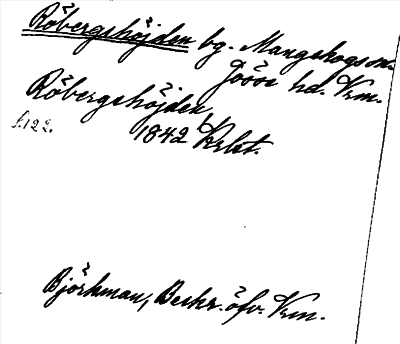 Röbergshöjden bg. Mangskogs sn.
Jösse hd. Vrm.
Röbergshöjden
f. 122. 1842 Krlst.
Björkman, Beskr. öfv. Vrm.